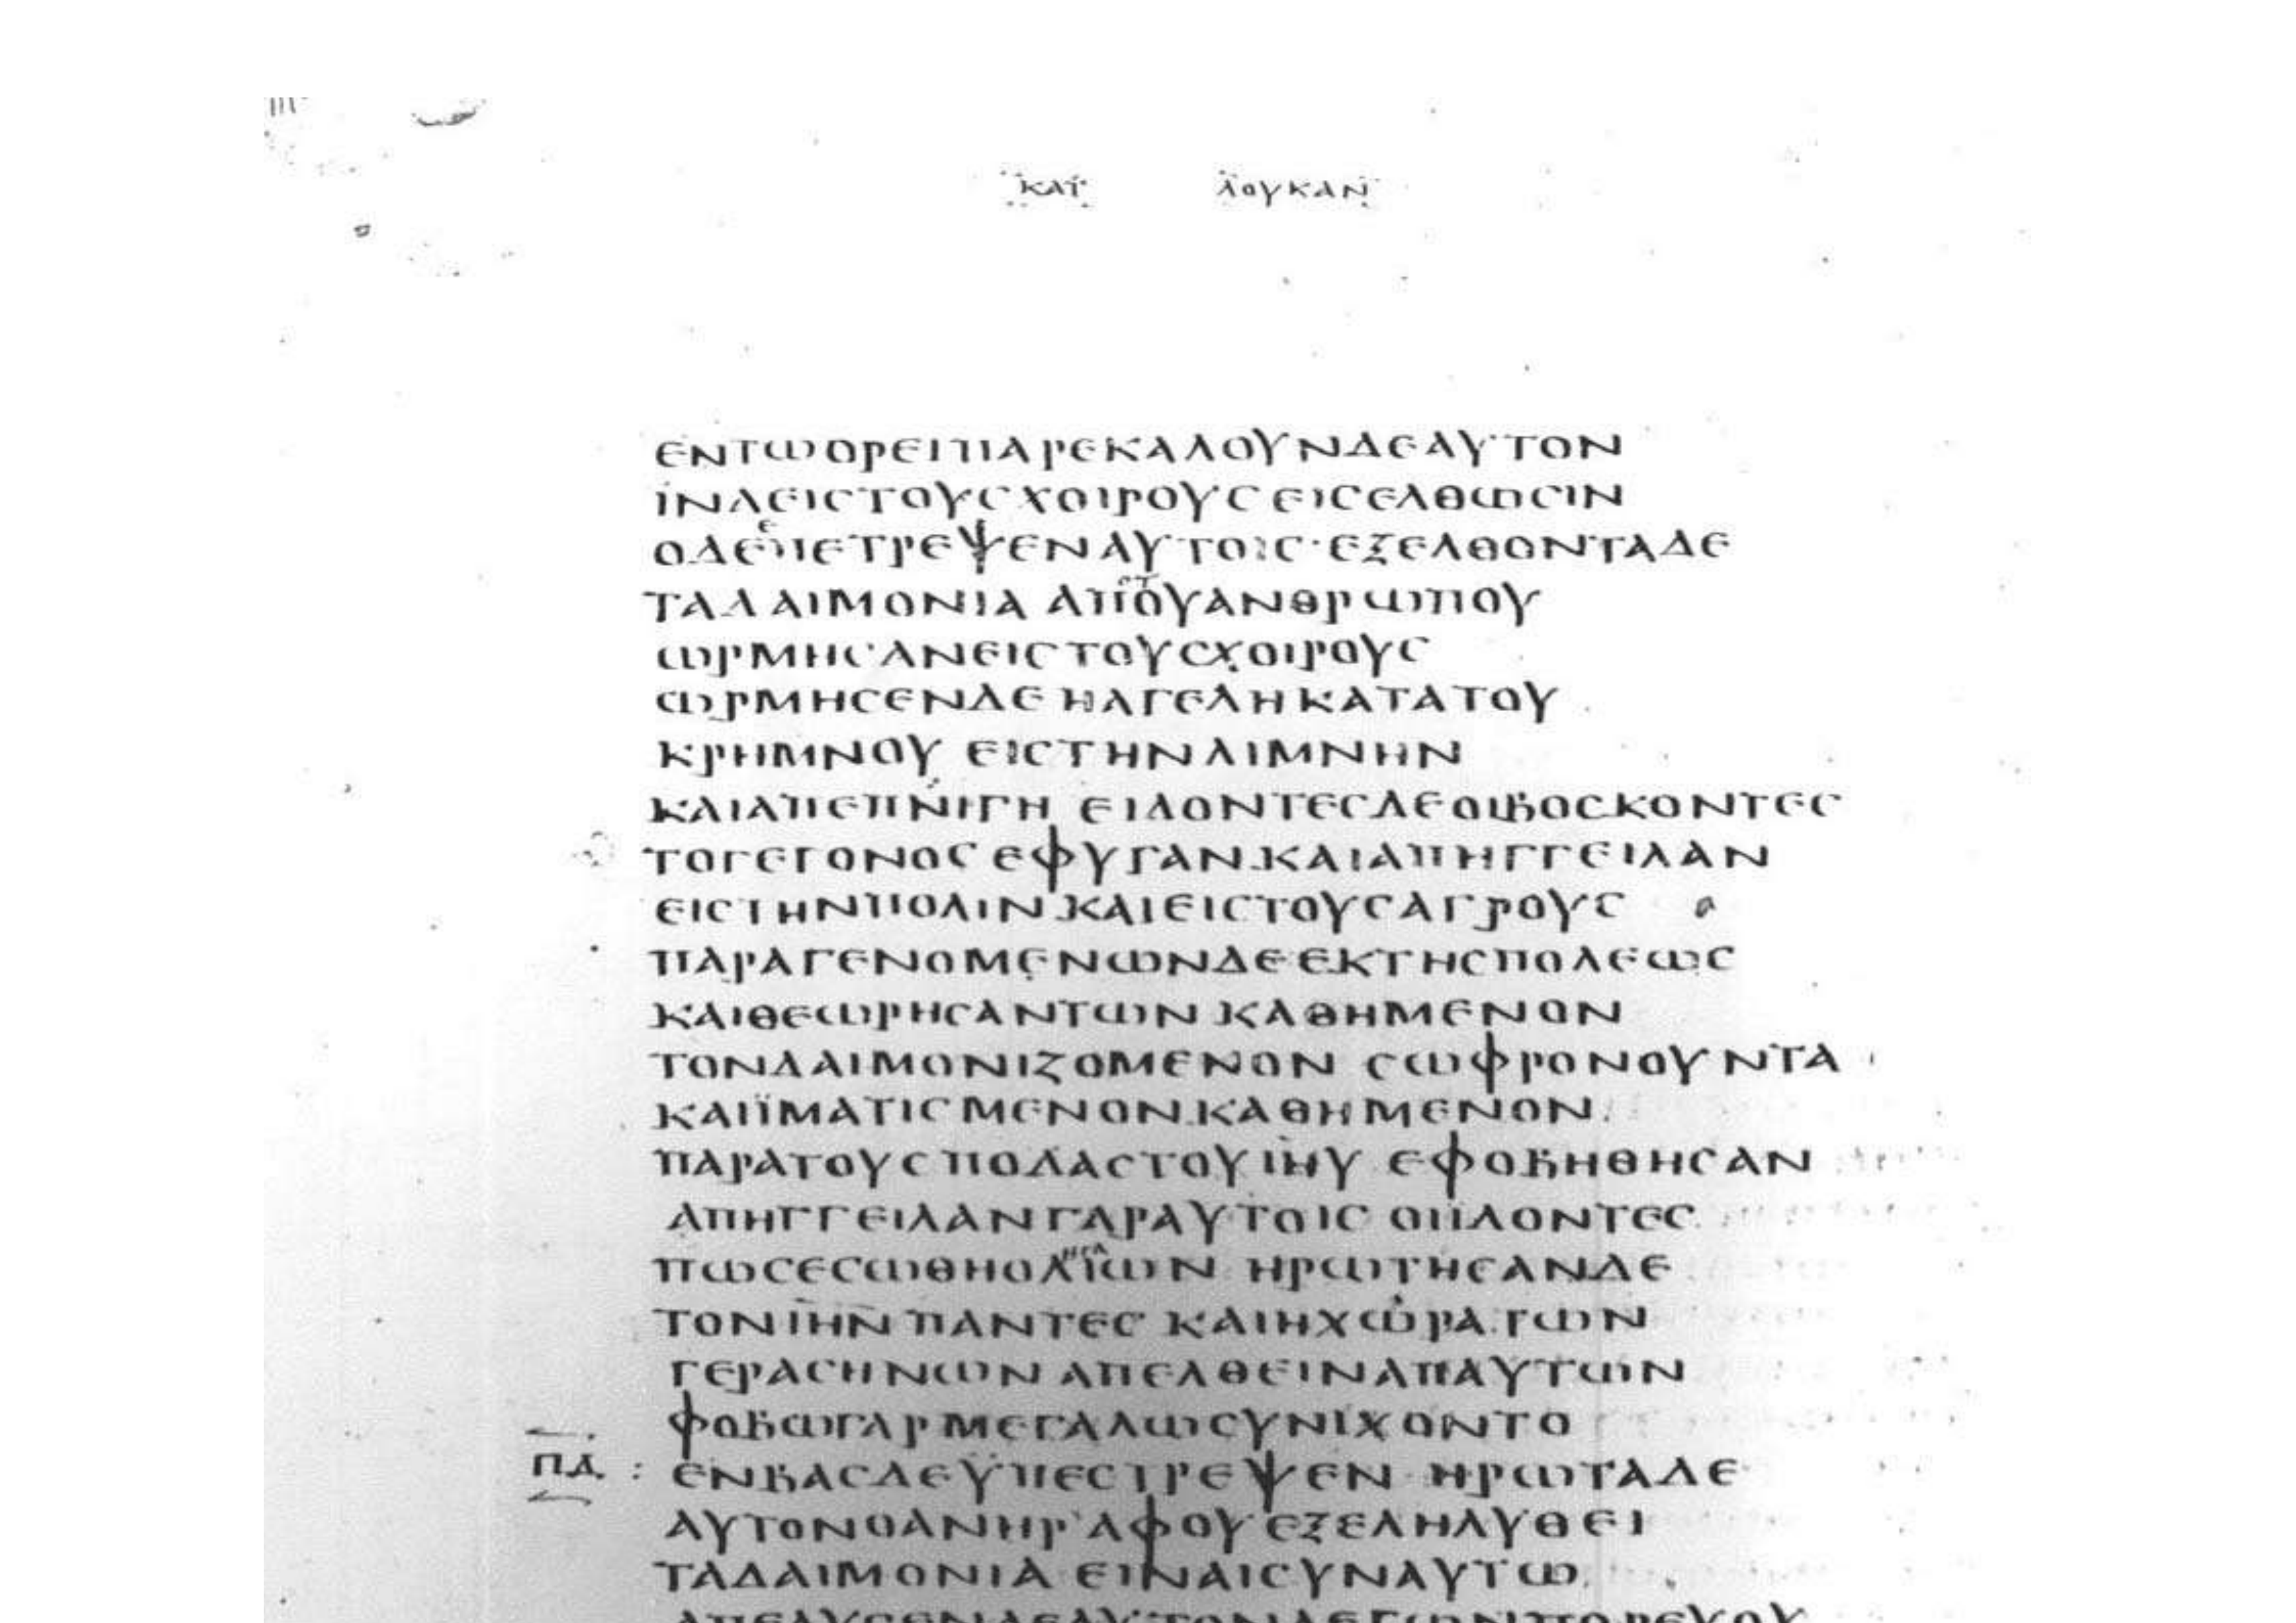 ΚΑΤ ΛΟΥΚΑΝ
ΕΝΤΩΟΡΕΙΠΑΡΕΚΑΛΟΥΝΔΕΑΥΤΟΝ
ΪΝΑΕΙΣΤΟΥΣΧΟΙΡΟΥΣΕΙΣΕΛΘΩΣΙΝ
ΟΔΕΠΕΤΡΕΨΕΝΑΥΤΟΙΣ·ΕΞΕΛΘΟΝΤΑΔΕ
ΤΑΔΑΙΜΟΝΙΑ ΑΠΟΥΑΝΘΡΩΠΟΥ
ΩΡΜΗΣΑΝΕΙΣΤΟΥΣΧΟΙΡΟΥΣ
ΩΡΜΗΣΕΝΔΕ ΗΑΓΕΛΗΚΑΤΑΤΟΥ
ΚΡΗΜΝΟΥ ΕΙΣΤΗΝΛΙΜΝΗΝ
ΚΑΙΑΠΕΠΝΙΓΗ ΕΙΔΟΝΤΕΣΔΕΟΙΒΟΣΚΟΝΤΕΣ
ΤΟΓΕΓΟΝΟΣ ΕΦΥΓΑΝ.ΚΑΙΑΠΗΓΓΕΙΛΑΝ
ΕΙΣΤΗΝΠΟΛΙΝ.ΚΑΙΕΙΣΤΟΥΣΑΓΡΟΥΣ
ΠΑΡΑΓΕΝΟΜΕΝΩΝΔΕΕΚΤΗΣΠΟΛΕΩΣ
ΚΑΙΘΕΩΡΗΣΑΝΤΩΝ ΚΑΘΗΜΕΝΟΝ
ΤΟΝΔΑΙΜΟΝΙΖΟΜΕΝΟΝ ΣΩΦΡΟΝΟΥΝΤΑ
ΚΑΙΪΜΑΤΙΣΜΕΝΟΝ.ΚΑΘΗΜΕΝΟΝ
ΠΑΡΑΤΟΥΣΠΟΔΑΣΤΟΥΙΗΥ ΕΦΟΒΗΘΗΣΑΝ
ΑΠΗΓΓΕΙΛΑΝΓΑΡΑΥΤΟΙΣ ΟΙΪΔΟΝΤΕΣ
ΠΩΣΕΣΩΘΗΟΛΙΩΝ ΗΡΩΤΗΣΑΝΔΕ
ΤΟΝΙΗΝ ΠΑΝΤΕΣ ΚΑΙΗΧΩΡΑ ΤΩΝ
ΓΕΡΑΣΗΝΩΝ ΑΠΕΛΘΕΙΝΑΠΑΥΤΩΝ
ΦΟΒΩΓΑΡ ΜΕΓΑΛΩΣΥΝΙΧΟΝΤΟ
ΠΔ : ΕΝΒΑΣΔΕΫΠΕΣΤΡΕΨΕΝ ΗΡΩΤΑΔΕ
ΑΥΤΟΝΟΑΝΗΡ ΑΦΟΥ ΕΞΕΛΗΛΥΘΕΙ
ΤΑΔΑΙΜΟΝΙΑ ΕΙΝΑΙΣΥΝΑΥΤΩ
ΑΠΕΛΥΣΕΝΔΕΑΥΤΟΝΛΕΓΩΝΠΟΡΕΥΟΥ